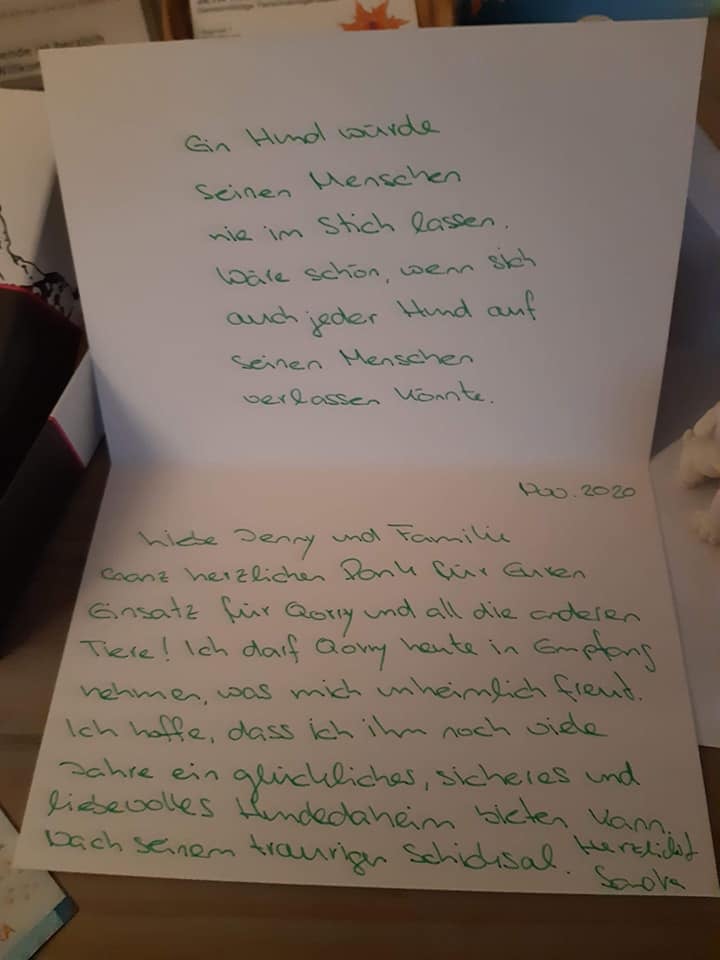 Ein Hund würde
seinen Menschen
nie im Stich lassen.
Wäre schön, wenn sich
auch jeder Hund auf
seinen Menschen
verlassen könnte.
Nov. 2020
Liebe Jenny und Familie
Ganz herzlichen Dank für Euren
Einsatz für Qorry und all die anderen
Tiere! Ich darf Qorry heute in Empfang
nehmen, was mich unheimlich freut.
Ich hoffe, dass ich ihm noch viele
Jahre ein glückliches, sicheres und
liebevolles Hundedaheim bieten kann.
Nach seinem traurigen Schicksal. Herzlichst